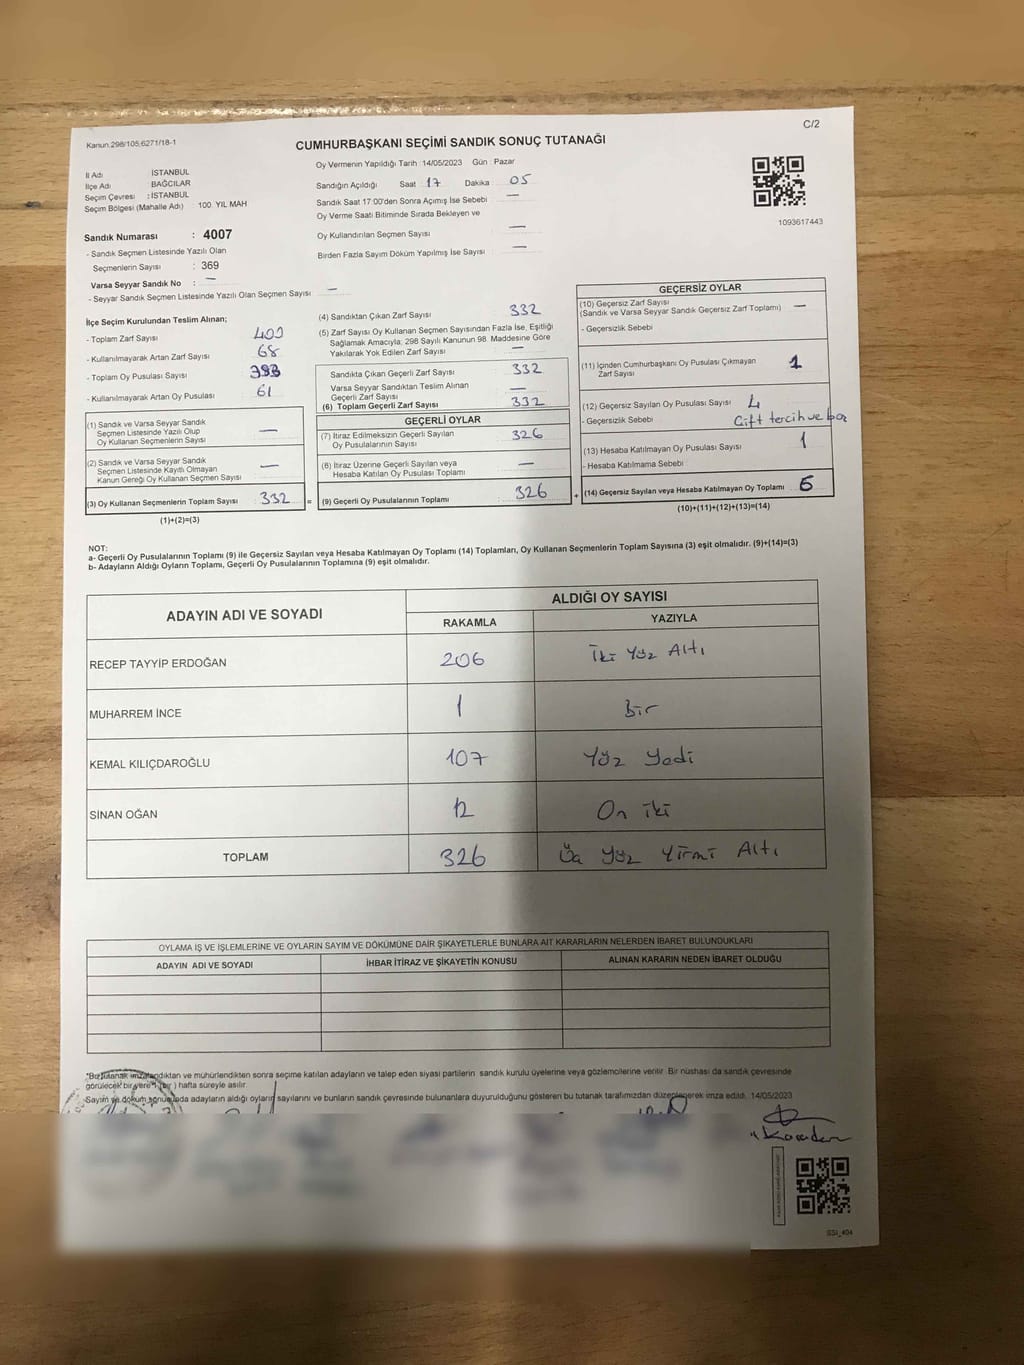 C/2
Kanun.298/105;6271/18-1
CUMHURBAŞKANI SEÇİMİ SANDIK SONUÇ TUTANAĞI
Oy Vermenin Yapıldığı Tarih : 14/05/2023 Gün : Pazar
İl Adı : İSTANBUL
İlçe Adı : BAĞCILAR
Seçim Çevresi : İSTANBUL
Seçim Bölgesi (Mahalle Adı) : 100. YIL MAH
Sandığın Açıldığı Saat 17 Dakika : 05
Sandık Saat 17:00'den Sonra Açımış İse Sebebi —
Oy Verme Saati Bitiminde Sırada Bekleyen ve
Oy Kullandırılan Seçmen Sayısı —
Birden Fazla Sayım Döküm Yapılmış İse Sayısı —
1093617443
Sandık Numarası : 4007
- Sandık Seçmen Listesinde Yazılı Olan
Seçmenlerin Sayısı : 369
Varsa Seyyar Sandık No : —
- Seyyar Sandık Seçmen Listesinde Yazılı Olan Seçmen Sayısı —
İlçe Seçim Kurulundan Teslim Alınan;
- Toplam Zarf Sayısı 400
- Kullanılmayarak Artan Zarf Sayısı 68
- Toplam Oy Pusulası Sayısı 393
- Kullanılmayarak Artan Oy Pusulası 61
(1) Sandık ve Varsa Seyyar Sandık
Seçmen Listesinde Yazılı Olup
Oy Kullanan Seçmenlerin Sayısı —
(2) Sandık ve Varsa Seyyar Sandık
Seçmen Listesinde Kayıtlı Olmayan
Kanun Gereği Oy Kullanan Seçmen Sayısı —
(3) Oy Kullanan Seçmenlerin Toplam Sayısı 332 =
(1)+(2)=(3)
(4) Sandıktan Çıkan Zarf Sayısı 332
(5) Zarf Sayısı Oy Kullanan Seçmen Sayısından Fazla İse, Eşitliği
Sağlamak Amacıyla; 298 Sayılı Kanunun 98. Maddesine Göre
Yakılarak Yok Edilen Zarf Sayısı —
Sandıkta Çıkan Geçerli Zarf Sayısı 332
Varsa Seyyar Sandıktan Teslim Alınan
Geçerli Zarf Sayısı —
(6) Toplam Geçerli Zarf Sayısı 332
GEÇERLİ OYLAR
(7) İtiraz Edilmeksizin Geçerli Sayılan
Oy Pusulalarının Sayısı 326
(8) İtiraz Üzerine Geçerli Sayılan veya
Hesaba Katılan Oy Pusulası Toplamı —
(9) Geçerli Oy Pusulalarının Toplamı 326 +
GEÇERSİZ OYLAR
(10) Geçersiz Zarf Sayısı
(Sandık ve Varsa Seyyar Sandık Geçersiz Zarf Toplamı) —
- Geçersizlik Sebebi
(11) İçinden Cumhurbaşkanı Oy Pusulası Çıkmayan
Zarf Sayısı 1
(12) Geçersiz Sayılan Oy Pusulası Sayısı 4
- Geçersizlik Sebebi Çift tercih ve boş
(13) Hesaba Katılmayan Oy Pusulası Sayısı 1
- Hesaba Katılmama Sebebi
(14) Geçersiz Sayılan veya Hesaba Katılmayan Oy Toplamı
(10)+(11)+(12)+(13)=(14)
NOT:
a- Geçerli Oy Pusulalarının Toplamı (9) ile Geçersiz Sayılan veya Hesaba Katılmayan Oy Toplamı (14) Toplamları, Oy Kullanan Seçmenlerin Toplam Sayısına (3) eşit olmalıdır. (9)+(14)=(3)
b- Adayların Aldığı Oyların Toplamı, Geçerli Oy Pusulalarının Toplamına (9) eşit olmalıdır.
ADAYIN ADI VE SOYADI
ALDIĞI OY SAYISI
RAKAMLA YAZIYLA
RECEP TAYYİP ERDOĞAN 206 İki Yüz Altı
MUHARREM İNCE 1 Bir
KEMAL KILIÇDAROĞLU 107 Yüz Yedi
SİNAN OĞAN 12 On iki
TOPLAM 326 Üç Yüz Yirmi Altı
OYLAMA İŞ VE İŞLEMLERİNE VE OYLARIN SAYIM VE DÖKÜMÜNE DAİR ŞİKAYETLERLE BUNLARA AİT KARARLARIN NELERDEN İBARET BULUNDUKLARI
ADAYIN ADI VE SOYADI İHBAR İTİRAZ VE ŞİKAYETİN KONUSU ALINAN KARARIN NEDEN İBARET OLDUĞU
*Bu tutanak imzalandıktan ve mühürlendikten sonra seçime katılan adayların ve talep eden siyasi partilerin sandık kurulu üyelerine veya gözlemcilerine verilir. Bir nüshası da sandık çevresinde
görülecek bir yere 1 ( bir ) hafta süreyle asılır.
Sayım ve döküm sonucunda adayların aldığı oyların sayılarını ve bunların sandık çevresinde bulunanlara duyurulduğunu gösteren bu tutanak tarafımızdan düzenlenerek imza edildi. 14/05/2023
SSI_404